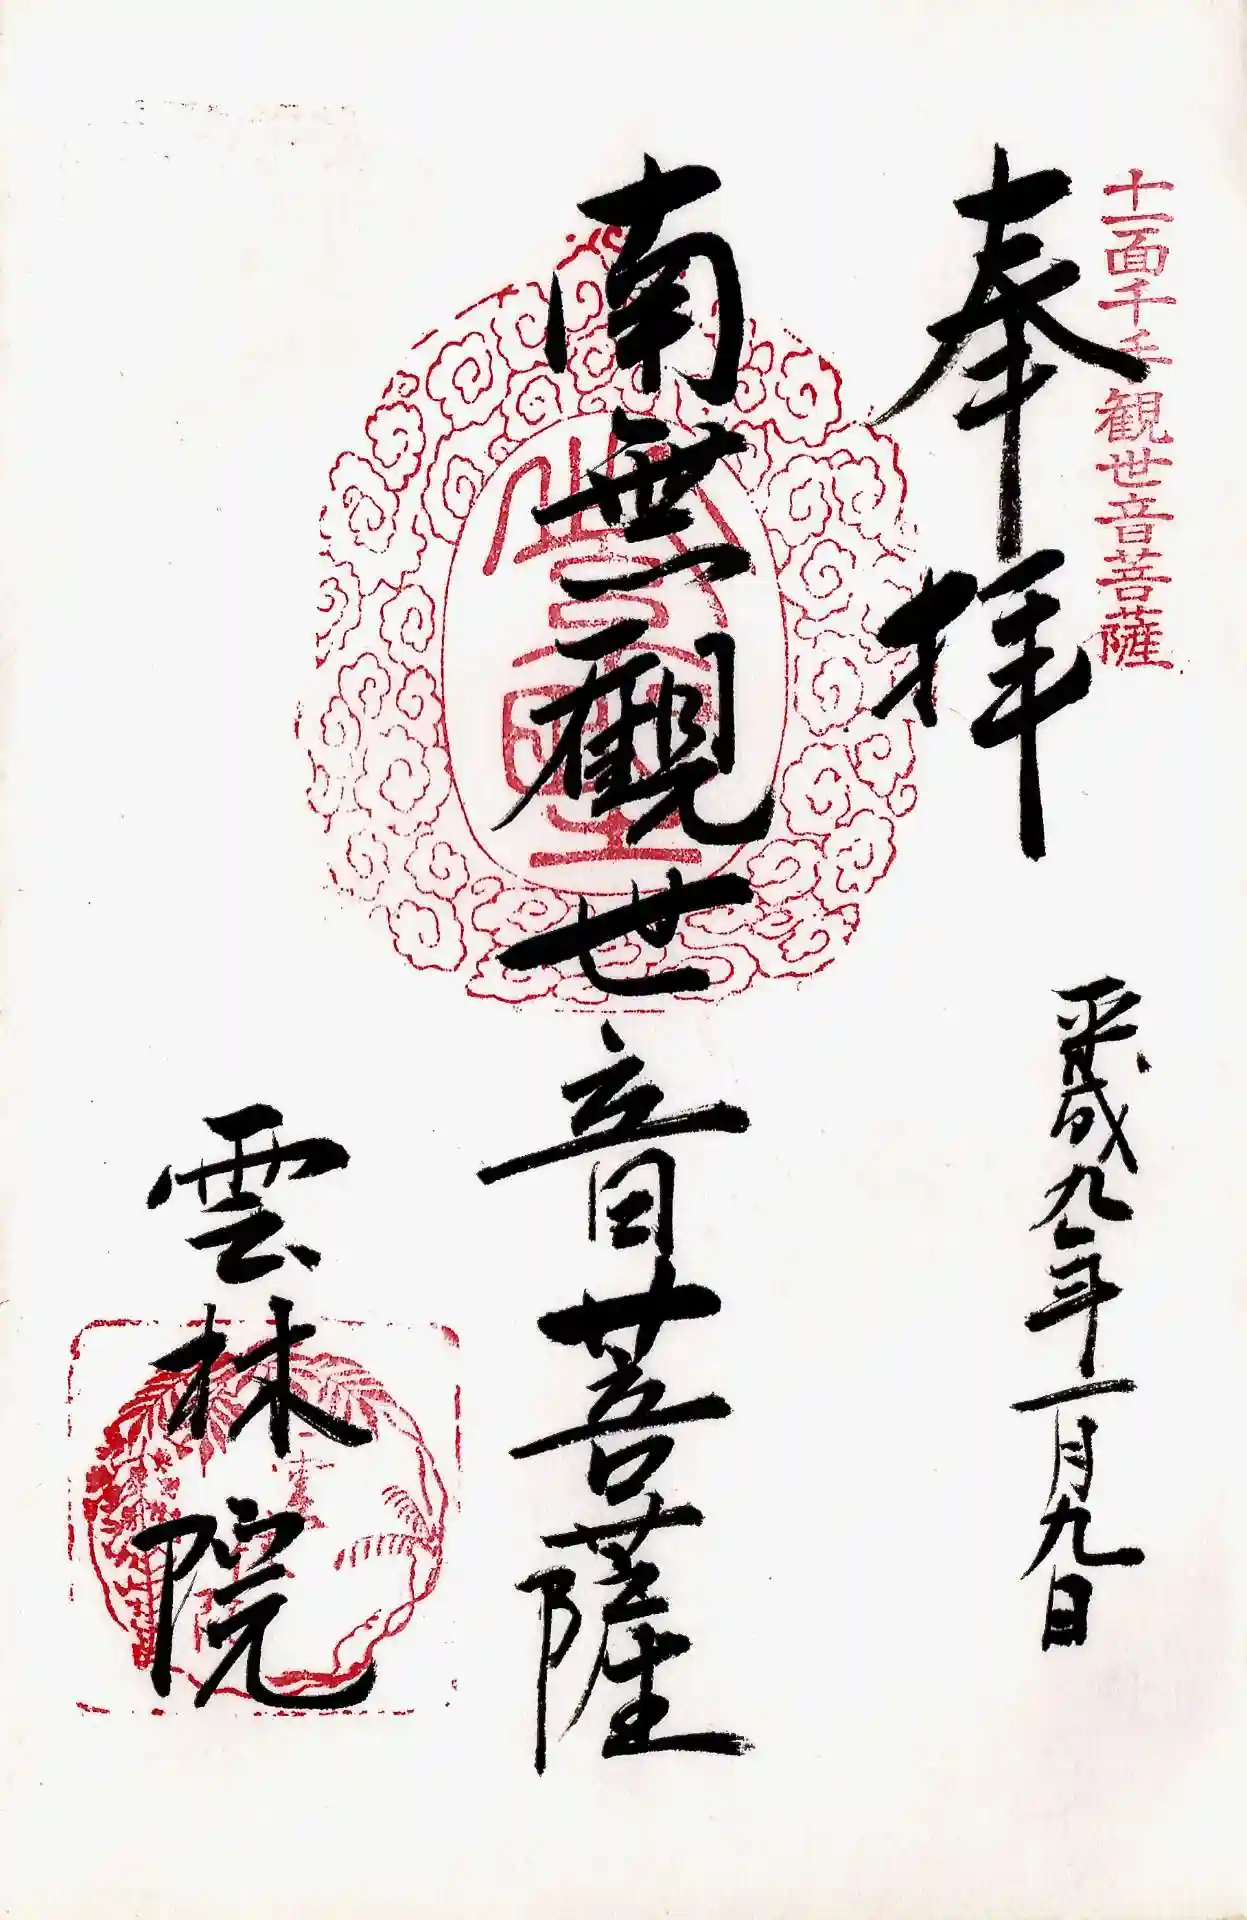 十一面千手観世音菩薩
奉拝
平成九年一月九日
南無観世音菩薩
雲林院